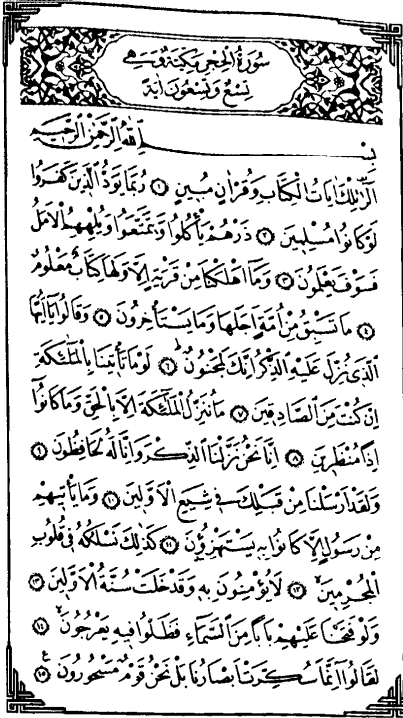 سُورَةُ الْحِجْرِ مَكِّيَّةٌ وَهِيَ
تِسْعٌ وَتِسْعُونَ اٰيَةً
بِسْمِ اللهِ الرَّحْمٰنِ الرَّحِيمِ
الٓرٰ تِلْكَ اٰيَاتُ الْكِتَابِ وَقُرْاٰنٍ مُبِينٍ ١ رُبَمَا يَوَدُّ الَّذِينَ كَفَرُوا
لَوْ كَانُوا مُسْلِمِينَ ٢ ذَرْهُمْ يَأْكُلُوا وَيَتَمَتَّعُوا وَيُلْهِهِمُ الْاَمَلُ
فَسَوْفَ يَعْلَمُونَ ٣ وَمَا اَهْلَكْنَا مِنْ قَرْيَةٍ اِلَّا وَلَهَا كِتَابٌ مَعْلُومٌ
٤ مَا تَسْبِقُ مِنْ اُمَّةٍ اَجَلَهَا وَمَا يَسْتَأْخِرُونَ ٥ وَقَالُوا يَٓا اَيُّهَا
الَّذِى نُزِّلَ عَلَيْهِ الذِّكْرُ اِنَّكَ لَمَجْنُونٌ ٦ لَوْمَا تَأْتِينَا بِالْمَلٰٓئِكَةِ
اِنْ كُنْتَ مِنَ الصَّادِقِينَ ٧ مَا نُنَزِّلُ الْمَلٰٓئِكَةَ اِلَّا بِالْحَقِّ وَمَا كَانُٓوا
اِذًا مُنْظَرِينَ ٨ اِنَّا نَحْنُ نَزَّلْنَا الذِّكْرَ وَاِنَّا لَهُ لَحَافِظُونَ ٩
وَلَقَدْ اَرْسَلْنَا مِنْ قَبْلِكَ فِى شِيَعِ الْاَوَّلِينَ ١٠ وَمَا يَأْتِيهِمْ
مِنْ رَسُولٍ اِلَّا كَانُوا بِهِ يَسْتَهْزِؤُنَ ١١ كَذٰلِكَ نَسْلُكُهُ فِى قُلُوبِ
الْمُجْرِمِينَ ١٢ لَا يُؤْمِنُونَ بِهِ وَقَدْ خَلَتْ سُنَّةُ الْاَوَّلِينَ ١٣
وَلَوْ فَتَحْنَا عَلَيْهِمْ بَابًا مِنَ السَّمَٓاءِ فَظَلُّوا فِيهِ يَعْرُجُونَ ١٤
لَقَالُٓوا اِنَّمَا سُكِّرَتْ اَبْصَارُنَا بَلْ نَحْنُ قَوْمٌ مَسْحُورُونَ ١٥ ع